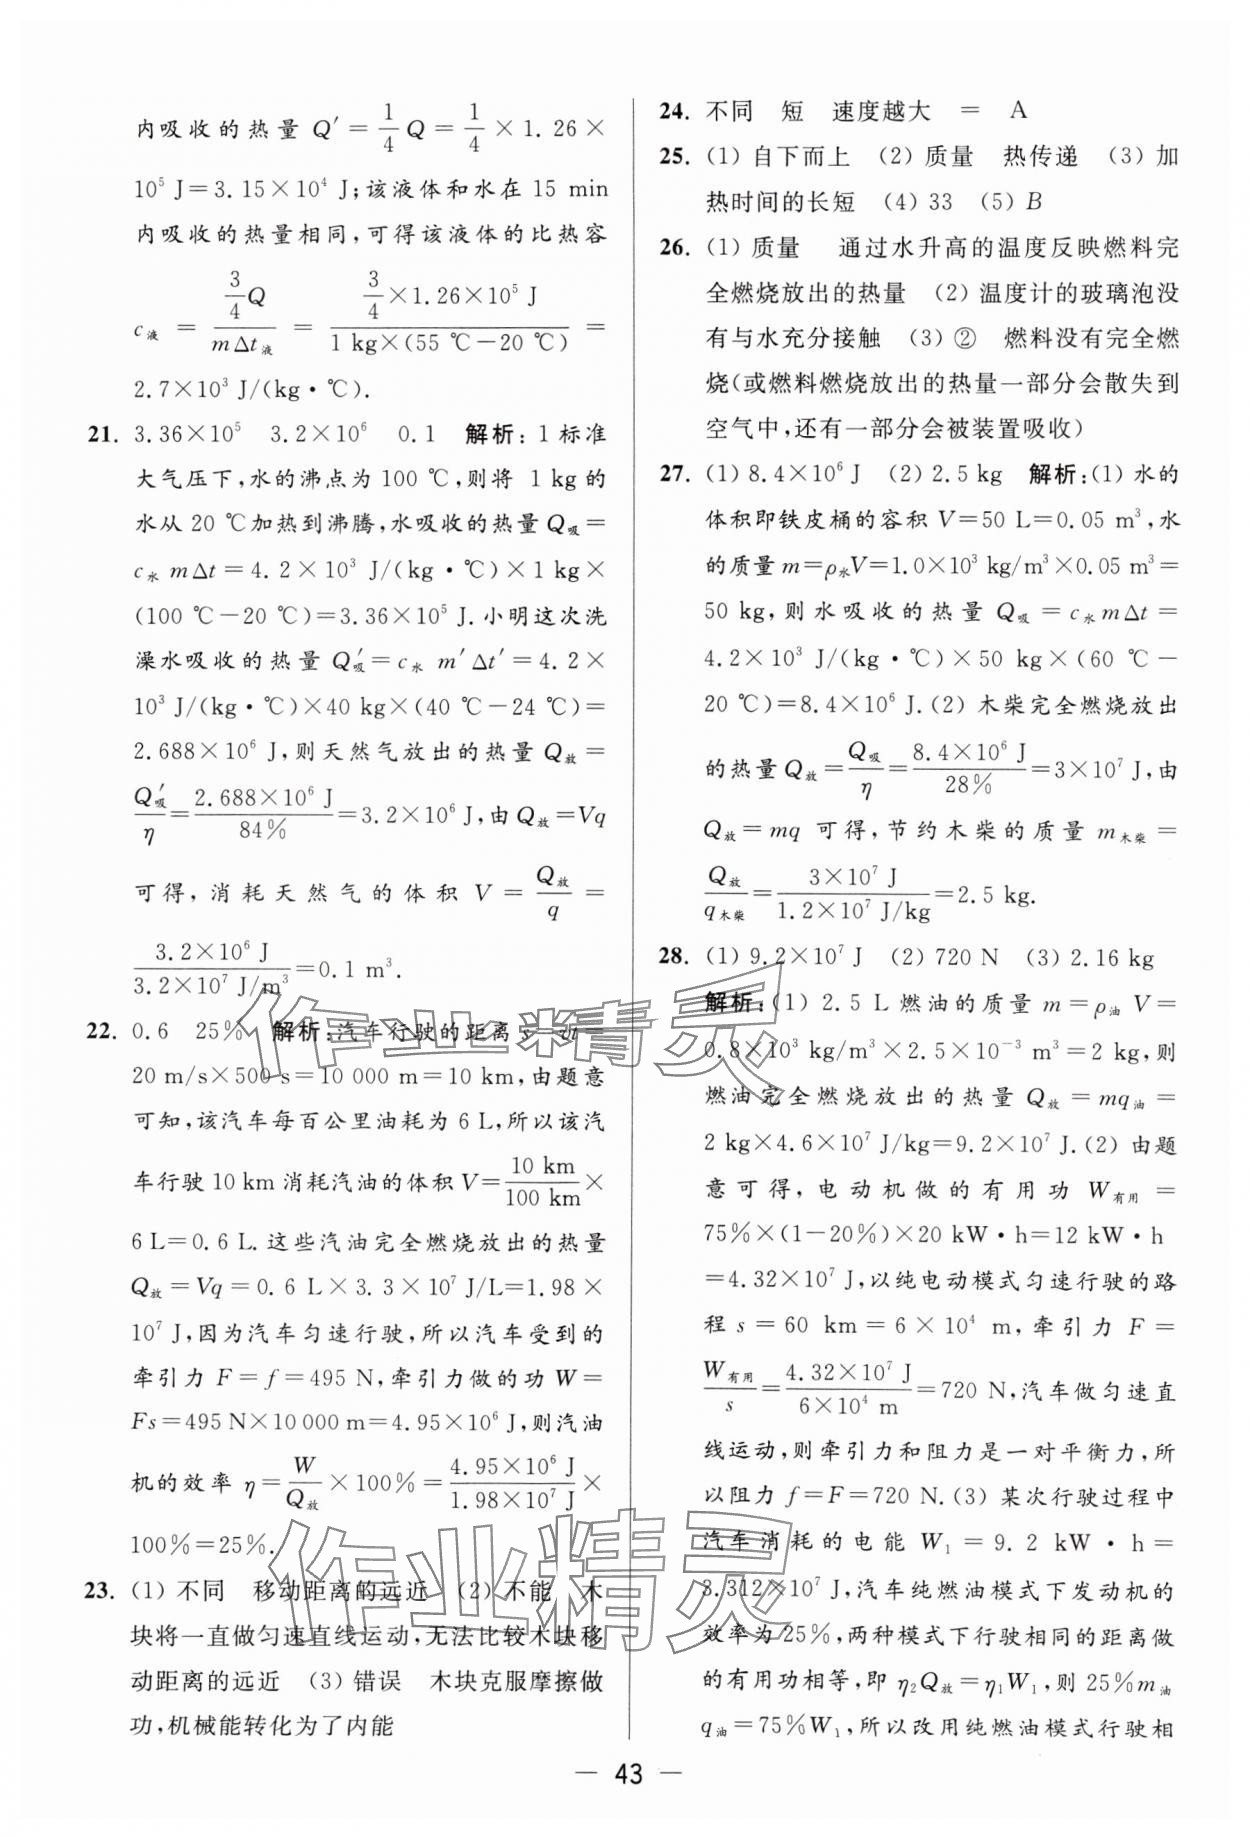 内吸收的热量 Q′=1/4 Q=1/4×1.26×
10⁵ J=3.15×10⁴ J;该液体和水在 15 min
内吸收的热量相同,可得该液体的比热容
c液 = (3/4 Q)/(mΔt液) = (3/4×1.26×10⁵ J)/(1 kg×(55 ℃-20 ℃)) =
2.7×10³ J/(kg·℃).
21. 3.36×10⁵ 3.2×10⁶ 0.1 解析:1 标准
大气压下,水的沸点为 100 ℃,则将 1 kg 的
水从 20 ℃加热到沸腾,水吸收的热量 Q吸=
c水 mΔt=4.2×10³ J/(kg·℃)×1 kg×
(100 ℃-20 ℃)=3.36×10⁵ J.小明这次洗
澡水吸收的热量 Q′吸=c水 m′Δt′=4.2×
10³ J/(kg·℃)×40 kg×(40 ℃-24 ℃)=
2.688×10⁶ J,则天然气放出的热量 Q放=
Q′吸/η=2.688×10⁶ J/84%=3.2×10⁶ J,由 Q放=Vq
可得,消耗天然气的体积 V=Q放/q=
3.2×10⁶ J/3.2×10⁷ J/m³=0.1 m³.
22. 0.6 25% 解析:汽车行驶的距离 s=vt=
20 m/s×500 s=10 000 m=10 km,由题意
可知,该汽车每百公里油耗为 6 L,所以该汽
车行驶 10 km 消耗汽油的体积 V=10 km/100 km×
6 L=0.6 L.这些汽油完全燃烧放出的热量
Q放=Vq=0.6 L×3.3×10⁷ J/L=1.98×
10⁷ J,因为汽车匀速行驶,所以汽车受到的
牵引力 F=f=495 N,牵引力做的功 W=
Fs=495 N×10 000 m=4.95×10⁶ J,则汽油
机的效率 η=W/Q放×100%=4.95×10⁶ J/1.98×10⁷ J×
100%=25%.
23. (1) 不同 移动距离的远近 (2) 不能 木
块将一直做匀速直线运动,无法比较木块移
动距离的远近 (3) 错误 木块克服摩擦做
功,机械能转化为了内能
24. 不同 短 速度越大 = A
25. (1) 自下而上 (2) 质量 热传递 (3) 加
热时间的长短 (4) 33 (5) B
26. (1) 质量 通过水升高的温度反映燃料完
全燃烧放出的热量 (2) 温度计的玻璃泡没
有与水充分接触 (3) ② 燃料没有完全燃
烧(或燃料燃烧放出的热量一部分会散失到
空气中,还有一部分会被装置吸收)
27. (1) 8.4×10⁶ J (2) 2.5 kg 解析:(1) 水的
体积即铁皮桶的容积 V=50 L=0.05 m³,水
的质量 m=ρ水V=1.0×10³ kg/m³×0.05 m³=
50 kg,则水吸收的热量 Q吸=c水mΔt=
4.2×10³ J/(kg·℃)×50 kg×(60 ℃-
20 ℃)=8.4×10⁶ J.(2) 木柴完全燃烧放出
的热量 Q放=Q吸/η=8.4×10⁶ J/28%=3×10⁷ J,由
Q放=mq 可得,节约木柴的质量 m木柴=
Q放/q木柴=3×10⁷ J/1.2×10⁷ J/kg=2.5 kg.
28. (1) 9.2×10⁷ J (2) 720 N (3) 2.16 kg
解析:(1) 2.5 L 燃油的质量 m=ρ油 V=
0.8×10³ kg/m³×2.5×10⁻³ m³=2 kg,则
燃油完全燃烧放出的热量 Q放=mq油=
2 kg×4.6×10⁷ J/kg=9.2×10⁷ J.(2) 由题
意可得,电动机做的有用功 W有用=
75%×(1-20%)×20 kW·h=12 kW·h
=4.32×10⁷ J,以纯电动模式匀速行驶的路
程 s=60 km=6×10⁴ m,牵引力 F=
W有用/s=4.32×10⁷ J/6×10⁴ m=720 N,汽车做匀速直
线运动,则牵引力和阻力是一对平衡力,所
以阻力 f=F=720 N.(3) 某次行驶过程中
汽车消耗的电能 W₁=9.2 kW·h=
3.312×10⁷ J,汽车纯燃油模式下发动机的
效率为 25%,两种模式下行驶相同的距离做
的有用功相等,即 η₂Q放=η₁W₁,则 25%m油
q油=75%W₁,所以改用纯燃油模式行驶相
— 43 —
作业精灵
作业精灵